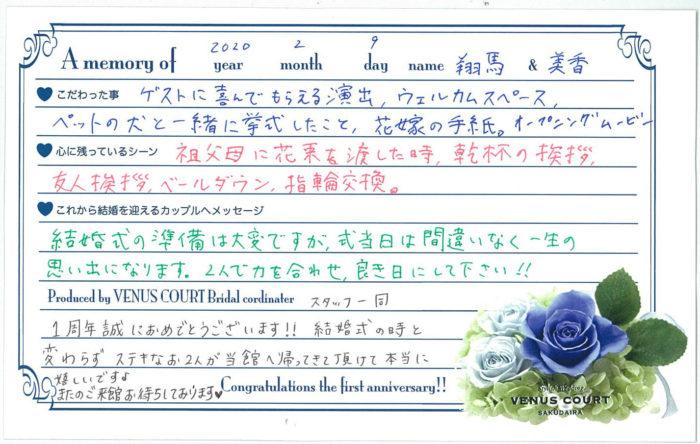 2020 2 9
A memory of year month day name 翔馬 & 美香
こだわった事 ゲストに喜んでもらえる演出, ウェルカムスペース,
ペットの犬と一緒に挙式したこと, 花嫁の手紙。オープニングムービー
心に残っているシーン 祖父母に花束を渡した時, 乾杯の挨拶,
友人挨拶, ベールダウン, 指輪交換。
これから結婚を迎えるカップルへメッセージ
結婚式の準備は大変ですが, 式当日は間違いなく一生の
思い出になります。2人で力を合わせ, 良き日にして下さい!!
Produced by VENUS COURT Bridal cordinater スタッフ一同
1周年誠におめでとうございます!! 結婚式の時と
変わらず ステキなお2人が当館へ帰ってきて頂けて本当に
嬉しいですよ
またのご来館お待ちしております♥ Congratulations the first anniversary!!
VENUS COURT
SAKUDAIRA